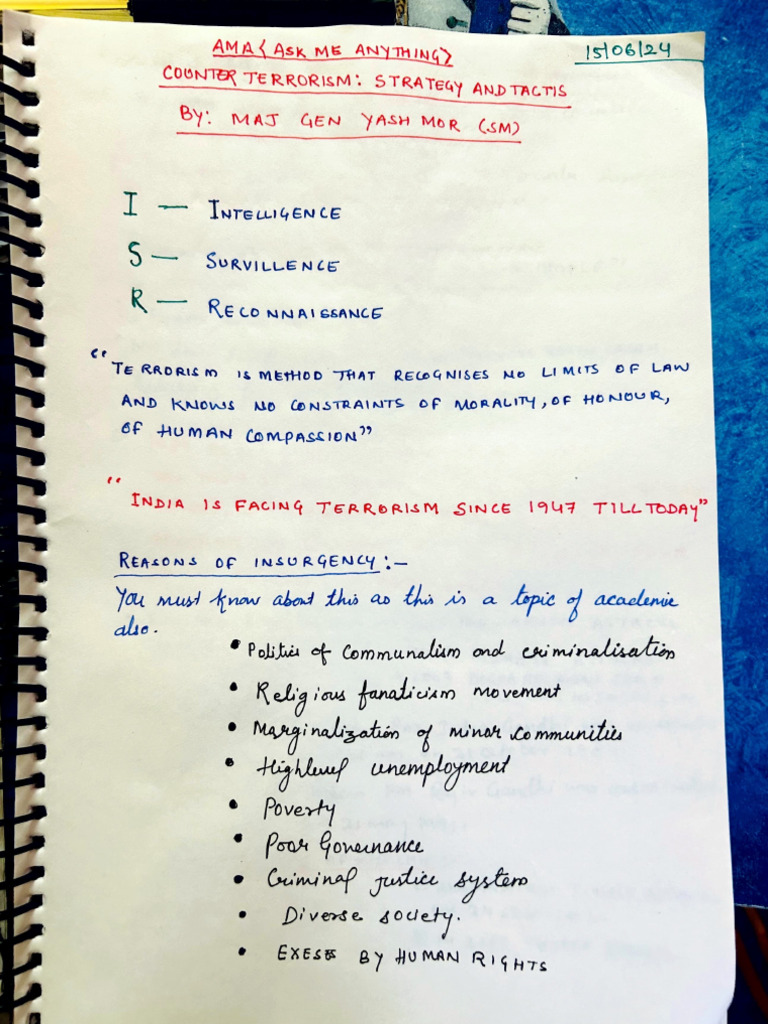 AMA { ASK ME ANYTHING}
15/06/24
COUNTER TERRORISM: STRATEGY AND TACTIS
BY: MAJ GEN YASH MOR (SM)
I — INTELLIGENCE
S — SURVILLENCE
R — RECONNAISSANCE
“TERRORISM IS METHOD THAT RECOGNISES NO LIMITS OF LAW
AND KNOWS NO CONSTRAINTS OF MORALITY, OF HONOUR,
OF HUMAN COMPASSION”
“INDIA IS FACING TERRORISM SINCE 1947 TILL TODAY”
REASONS OF INSURGENCY:-
You must know about this as this is a topic of academic
also.
• Politics of Communalism and criminalisation
• Religious fanaticism movement
• Marginalization of minor communities
• Highlevel unemployment
• Poverty
• Poor Governance
• Criminal justice system
• Diverse society.
• EXESES BY HUMAN RIGHTS